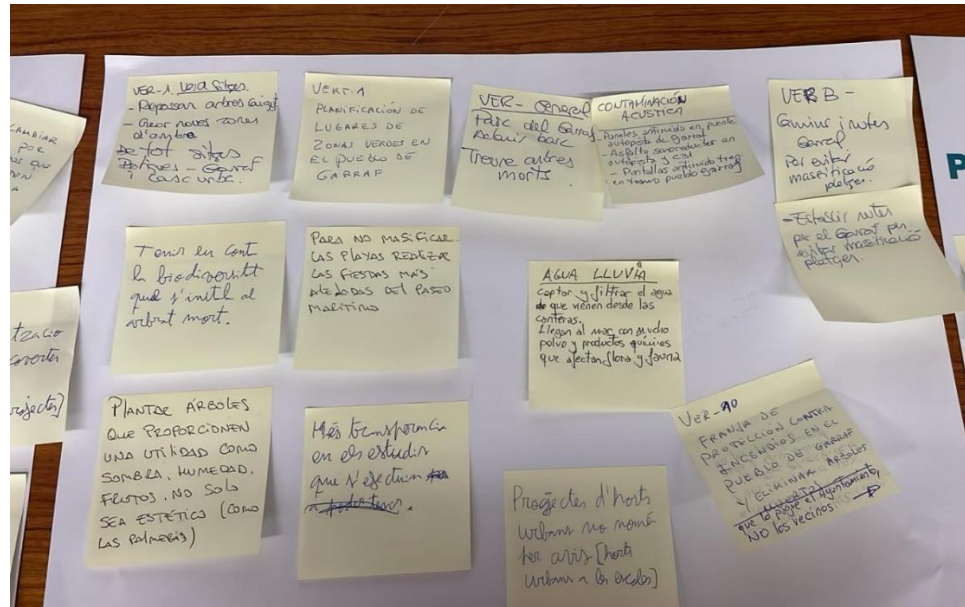 CAMBIAR
POR
QUE
VER-1. Vora Sitges.
- Repassar arbres
- Crear noves zones
d'ombra
De tot sitges
- Garraf
i Casc urbà.
VERT-1
PLANIFICACIÓN DE
LUGARES DE
ZONAS VERDES EN
EL PUEBLO DE
GARRAF
VER- General
Parc del Garraf
Treure arbres
morts.
CONTAMINACIÓN
ACUSTICA
- Paneles antiruido en puente
autopista de garraf
- Asfalto sonoreductor en
autopista y c31
- Pantallas antiruido tren
en tramo pueblo garraf
VER B -
Camins i rutes
Garraf.
Per evitar
massificació
platges.
- Establir rutes
per el Garraf per
evitar massificació
platges.
P
Tenir en cont
la biodiversitat
que s'instal al
arbrat mort.
PARA NO MASIFICAR
LAS PLAYAS REALIZAR
LAS FIESTAS MÁS
ALEJADAS DEL PASEO
MARÍTIMO
AGUA LLUVIA
Captar y filtrar el agua
de que vienen desde las
canteras.
Llegan al mar con mucho
polvo y productos químicos
que afectan flora y fauna
PLANTAR ÁRBOLES
QUE PROPORCIONEN
UNA UTILIDAD COMO
SOMBRA, HUMEDAD,
FRUTOS, NO SOLO
SEA ESTÉTICO (COMO
LAS PALMERAS)
Més transparència
en els estudis
que s'efectuin
Projectes d'horts
urbans no només
per avis [horts
urbans a les escoles]
VER-10
FRANJA DE
PROTECCION CONTRA
INCENDIOS EN EL
PUEBLO DE GARRAF
Y ELIMINAR ARBOLES
MUERTOS
que lo pague el Ayuntamiento,
NO los vecinos.